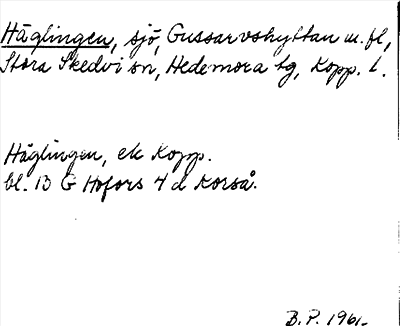 Häglingen, sjö, Gussarvshyttan m. fl,
Stora Skedvi sn, Hedemora tg, Kopp. l.
Häglingen, ek Kopp.
bl. 13 G Hofors 4 d Korså.
B.P. 1961.